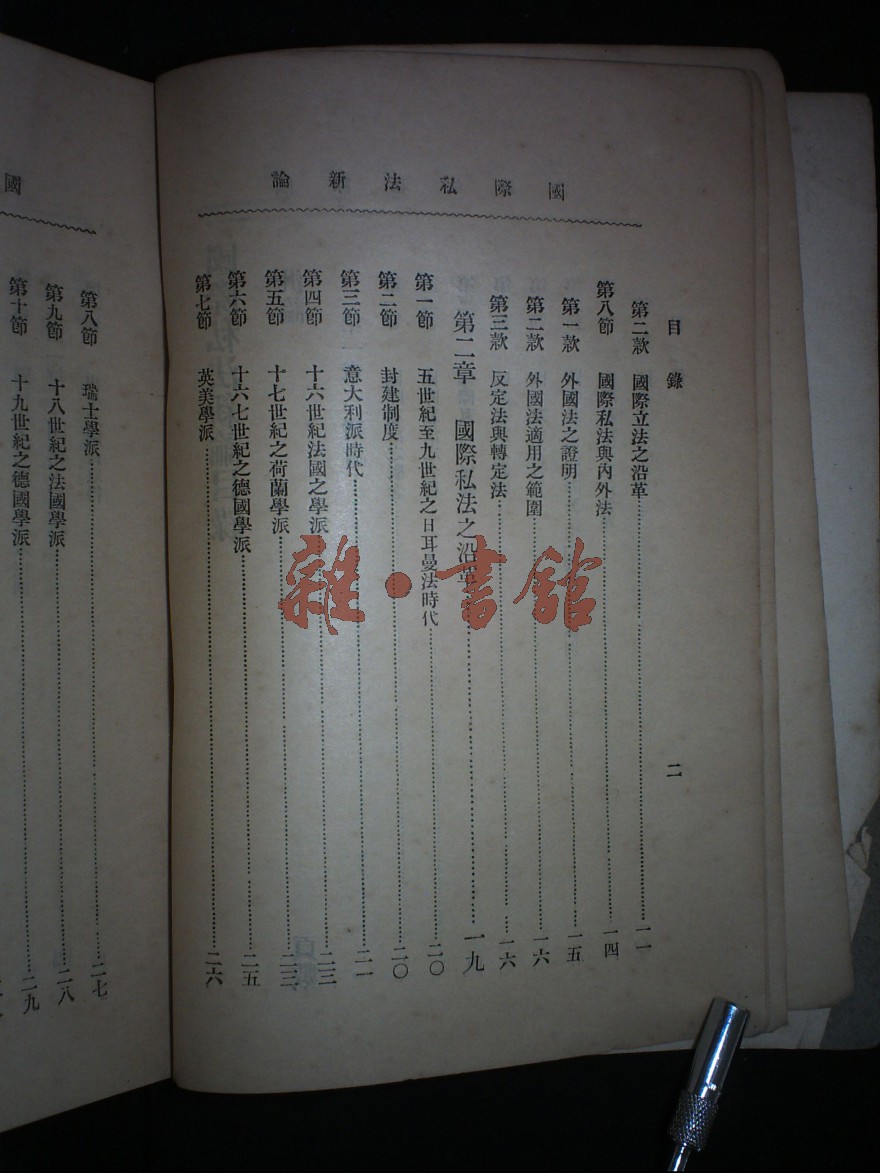 國際私法新論
目錄 二
第二款 國際立法之沿革……一一
第八節 國際私法與內外法……一四
第一款 外國法之證明……一五
第二款 外國法適用之範圍……一六
第三款 反定法與轉定法……一六
第二章 國際私法之沿革……一九
第一節 五世紀至九世紀之日耳曼法時代……二〇
第二節 封建制度……二〇
第三節 意大利派時代……二一
第四節 十六世紀法國之學派……二三
第五節 十七世紀之荷蘭學派……二三
第六節 十六七世紀之德國學派……二五
第七節 英美學派……二六
國
第八節 瑞士學派……二七
第九節 十八世紀之法國學派……二八
第十節 十九世紀之德國學派……二九
雜·書館